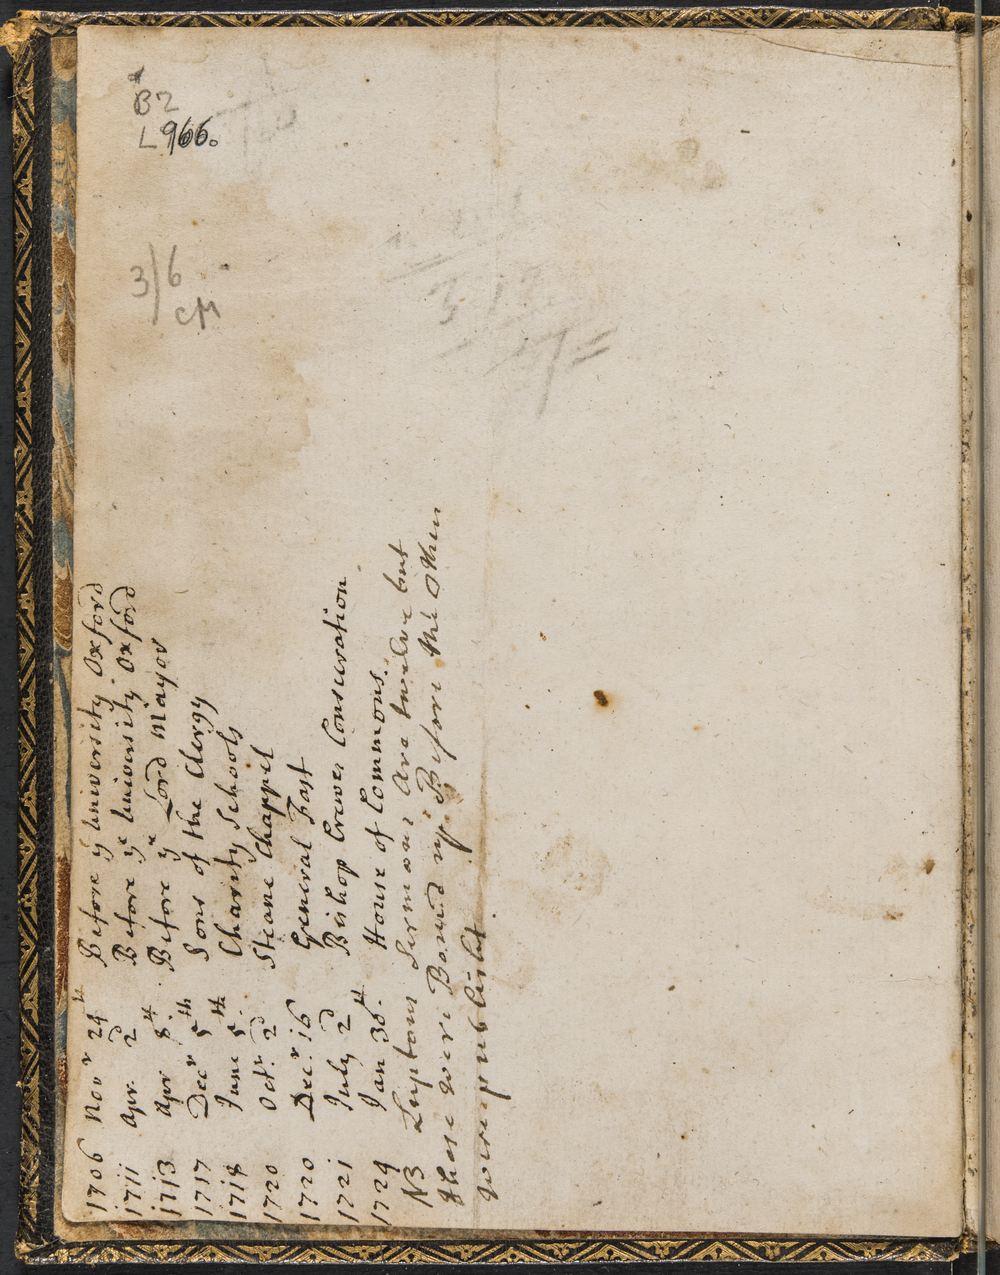 B2
L 966.
3/6
CM
1706 Nov.r 24th Before ye University Oxford
1711 Apr. 2d Before ye University Oxford
1713 Apr 8th Before ye Lord Mayor
1717 Decr 5th Sons of the Clergy
1718 June 5th Charity Schools
1720 Octr. 2d Steane Chappel
1720 Decr. 16 General Fast
1721 July 2d Bishop Crewes Consecration
1724 Jan 30th House of Commons.
NB Luptons Sermons Are twelve but
these were Bound up Before the Other
were publisht